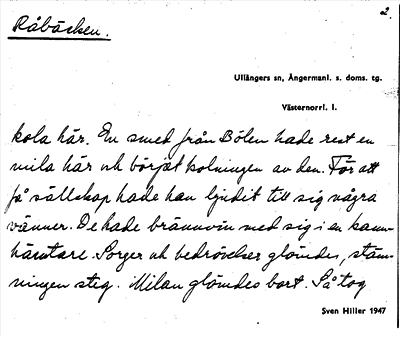 2.
Råbäcken.
Ullångers sn, Ångermanl. s. doms. tg.
Västernorrl. l.
kola här. En smed från Bölen hade rest en
mila här och börjat kolningen av den. För att
få sällskap hade han bjudit till sig några
vänner. De hade brännvin med sig i en kann-
hämtare. Sorger och bedrövelser glömdes, stäm-
ningen steg. Milan glömdes bort. Så tog
Sven Hiller 1947